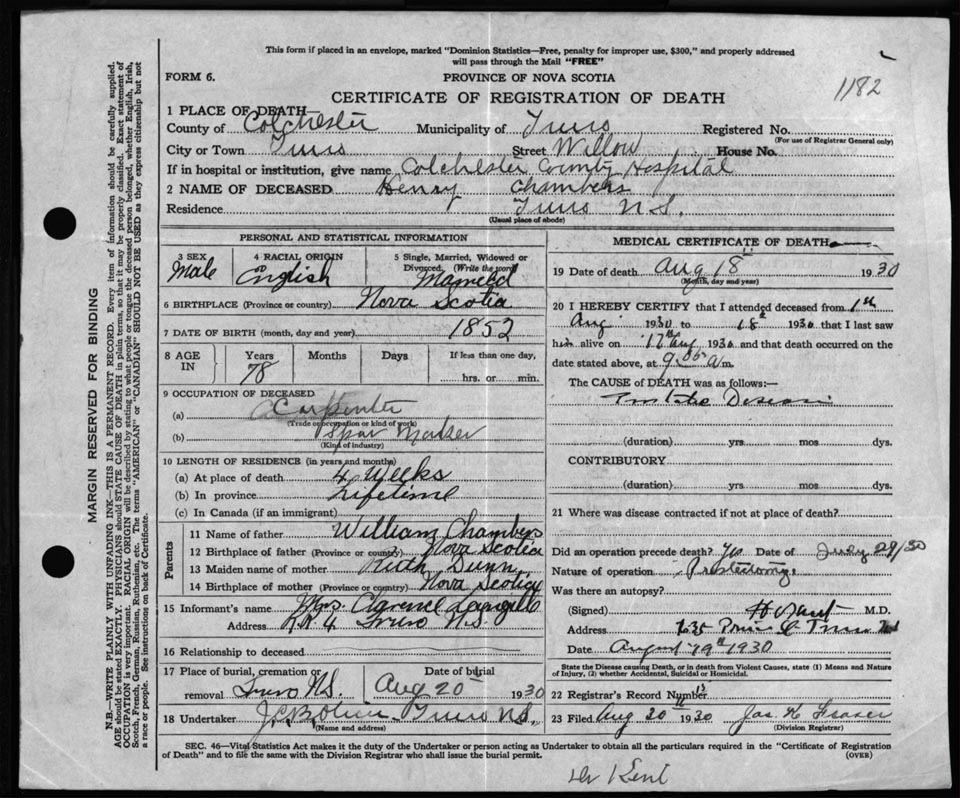 This form if placed in an envelope, marked "Dominion Statistics—Free, penalty for improper use, $300," and properly addressed
will pass through the Mail "FREE"
FORM 6.
PROVINCE OF NOVA SCOTIA
1182
CERTIFICATE OF REGISTRATION OF DEATH
1 PLACE OF DEATH—
County of Colchester Municipality of Truro Registered No.
(For use of Registrar General only)
City or Town Truro Street Willow House No.
If in hospital or institution, give name Colchester County Hospital
2 NAME OF DECEASED Henry Chambers
Residence Truro N.S.
(Usual place of abode)
PERSONAL AND STATISTICAL INFORMATION
3 SEX 4 RACIAL ORIGIN 5 Single, Married, Widowed or
Divorced. (Write the word)
Male English Married
6 BIRTHPLACE (Province or country) Nova Scotia
7 DATE OF BIRTH (month, day and year) 1852
8 AGE IN Years Months Days If less than one day,
78 hrs. or min.
9 OCCUPATION OF DECEASED
(a) Carpenter
(Trade occupation or kind of work)
(b) Spar Maker
(Kind of industry)
10 LENGTH OF RESIDENCE (in years and months)
(a) At place of death 4 Weeks
(b) In province Lifetime
(c) In Canada (if an immigrant)
Parents
11 Name of father William Chambers
12 Birthplace of father (Province or country) Nova Scotia
13 Maiden name of mother Ruth Dunn
14 Birthplace of mother (Province or country) Nova Scotia
15 Informant's name Mrs. Clarence Langille
Address R.R 4 Truro N.S.
16 Relationship to deceased
17 Place of burial, cremation or Date of burial
removal Truro N.S. Aug 20 1930
18 Undertaker Truro N.S.
(Name and address)
MEDICAL CERTIFICATE OF DEATH
19 Date of death Aug 18 1930
(Month, day and year)
20 I HEREBY CERTIFY that I attended deceased from 1st
Aug 1930 to 18 1930 that I last saw
him alive on 17th Aug 1930 and that death occurred on
date stated above, at 9.05 a m.
The CAUSE of DEATH was as follows:—
Disease
(duration) yrs. mos. dys.
CONTRIBUTORY
(duration) yrs. mos. dys.
21 Where was disease contracted if not at place of death?
Did an operation precede death? Yes Date of July 29/30
Nature of operation
Was there an autopsy?
(Signed) M.D.
Address Prince St Truro NS
Date August 19th 1930
State the Disease causing Death, or in death from Violent Causes, state (1) Means and Nature
of Injury, (2) whether Accidental, Suicidal or Homicidal.
22 Registrar's Record Number
23 Filed Aug 20 1930 Jas H Fraser
(Division Registrar)
SEC. 46—Vital Statistics Act makes it the duty of the Undertaker or person acting as Undertaker to obtain all the particulars required in the "Certificate of Registration
of Death" and to file the same with the Division Registrar who shall issue the burial permit. (OVER)
Dr Kent
MARGIN RESERVED FOR BINDING
N.B.—WRITE PLAINLY WITH UNFADING INK—THIS IS A PERMANENT RECORD. Every item of information should be carefully supplied.
AGE should be stated EXACTLY. PHYSICIANS should STATE CAUSE OF DEATH in plain terms, so that it may be properly classified. Exact statement of
OCCUPATION is very important. RACIAL ORIGIN will be described by stating to what people or tongue the deceased person belonged, whether English, Irish,
Scotch, French, German, Russian, Ruthenian, etc. The terms "AMERICAN" or "CANADIAN" SHOULD NOT BE USED as they express citizenship but not
a race or people. See instructions on back of Certificate.